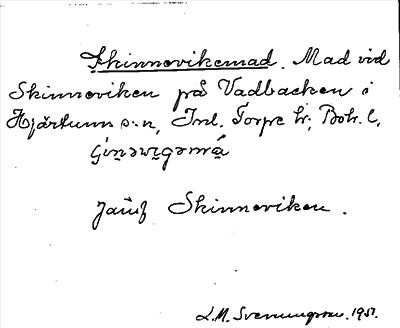 Skinnevikemad. Mad vid
Skinneviken på Vadbacken i
Hjärtums s:n, Inl. Torpe hr; Boh. l,
Jämf Skinneviken.
L.M. Svenungsson. 1951.